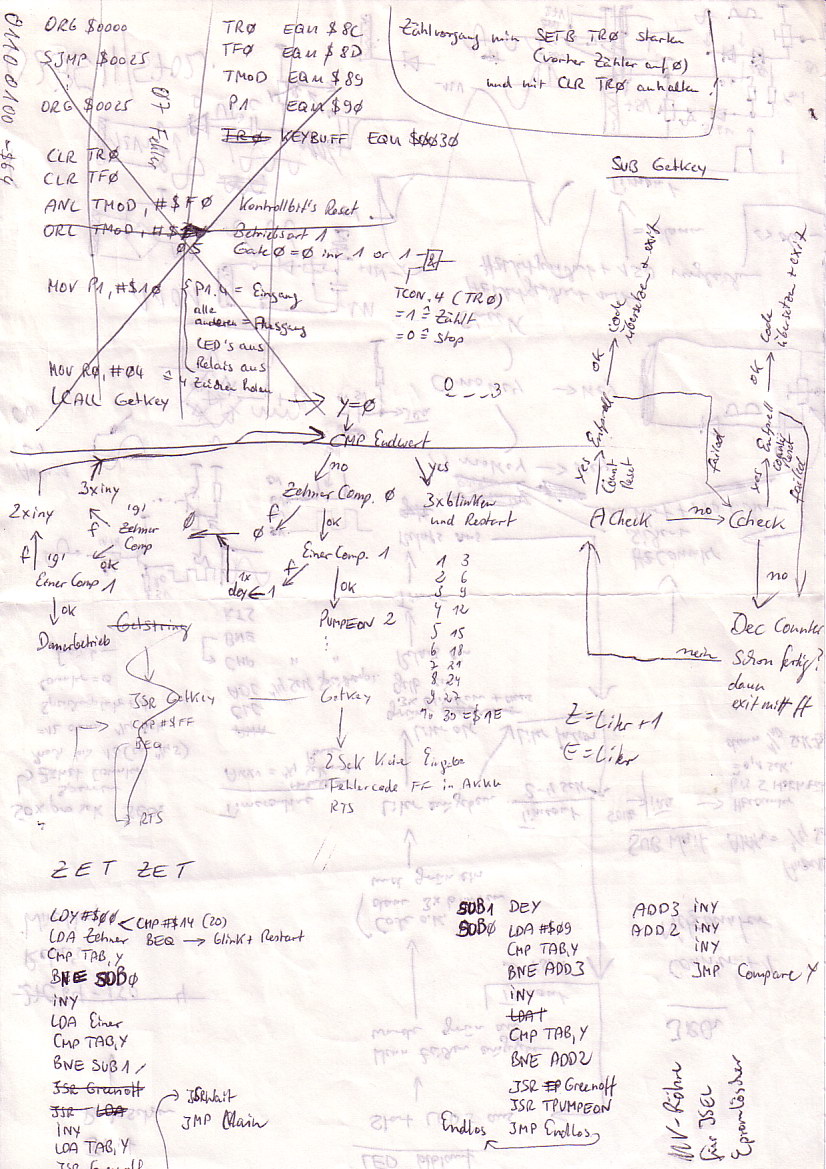 ORG $0000
SJMP $0025
ORG $0025
CLR TRØ
CLR TFØ
ANL TMOD, #$FØ Kontrollbit's Reset
ORL TMOD, #$ Betriebsart 1
Ø5 GateØ=Ø inv. 1 or 1 &
MOV P1, #$1Ø
P1.4 = Eingang
alle
anderen = Ausgang
LED's aus
Relais aus
MOV RØ, #Ø4 = 4 Zeichen holen
LCALL Getkey
01100100 = $64
07 Fehler
TRØ EQU $8C
TFØ EQU $8D
TMOD EQU $89
P1 EQU $90
IRØ KEYBUFF EQU $0030
Zählvorgang min SETB TRØ starten
(vorher Zähler auf Ø)
und mit CLR TRØ anhalten!
SUB Getkey
TCON.4 (TRØ)
=1 ≙ Zählt
=0 ≙ Stop
0 _ _ 3
Y=Ø
CMP Endwert
no
yes
Zehner Comp. Ø
3xblinken
und Restart
f
ok
Einer Comp. 1
f
ok
PUMPEON 2
Ø
Ø
1x
dey
1
2xiny
3xiny
f
'9'
Zehner
Comp
ok
f
'9'
Einer Comp 1
ok
Dauerbetrieb
Getstring
JSR Getkey
CMP #$FF
BEQ
RTS
Getkey
2 Sek keine Eingabe
Fehlercode FF in Akku
RTS
1 3
2 6
3 9
4 12
5 15
6 18
7 21
8 24
9 27
10 30 = $1E
ACheck
no
Ccheck
yes
Count
Reset
Entprell
ok
Code
übersetzen + exit
failed
yes
Entprell
count
Reset
ok
Code
übersetzen + exit
failed
no
Dec Counter
nein
Schon fertig?
dann
exit mit ff
Z = Liter + 1
E = Liter
ZET ZET
LDY #$00
CMP #$14 (20)
LDA Zehner BEQ → blink + Restart
CMP TAB,Y
BNE SUBØ
INY
LDA Einer
CMP TAB,Y
BNE SUB1
JSR Greenoff
JSR LDA
INY
LDA TAB,Y
JSR Greenoff
JSRWait
JMP Main
SUB1 DEY
SUBØ LDA #$09
CMP TAB,Y
BNE ADD3
INY
LDA 1
CMP TAB,Y
BNE ADD2
JSR Greenoff
JSR TPUMPEON
Endlos JMP Endlos
ADD3 INY
ADD2 INY
INY
JMP Compare Y
UV-Röhre
für ISEL
Epromlöscher